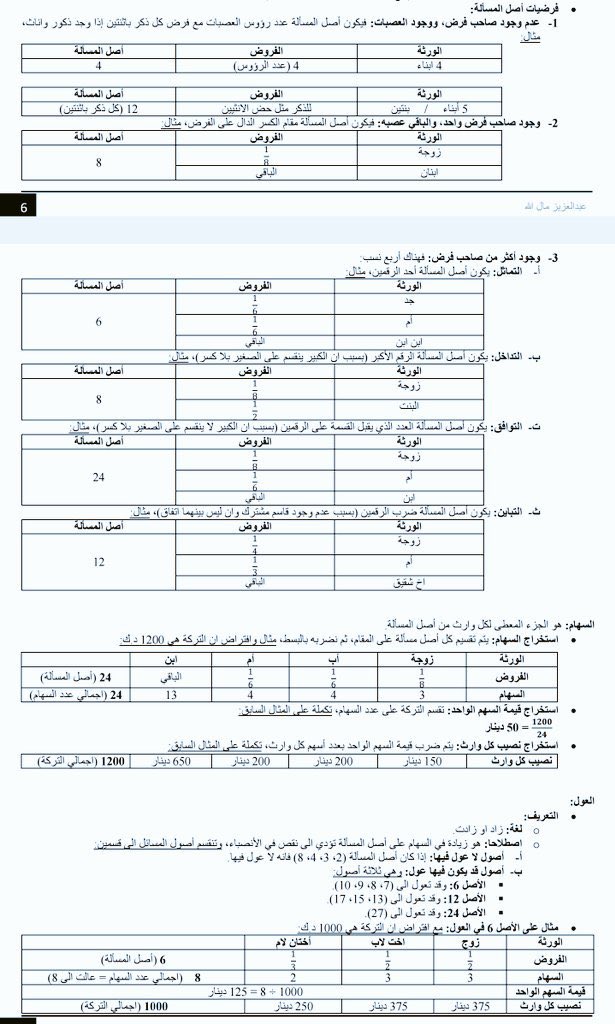 • فرضيات أصل المسألة:
1- عدم وجود صاحب فرض، ووجود العصبات: فيكون أصل المسألة عدد رؤوس العصبات مع فرض كل ذكر باثنتين إذا وجد ذكور واناث،
مثال:
الورثة الفروض أصل المسألة
4 ابناء 4 (عدد الرؤوس) 4
الورثة الفروض أصل المسألة
5 أبناء / بنتين للذكر مثل حض الانثيين 12 (كل ذكر باثنتين)
2- وجود صاحب فرض واحد، والباقي عصبه: فيكون أصل المسألة مقام الكسر الدال على الفرض، مثال:
الورثة الفروض أصل المسألة
زوجة 1/8 8
ابنان الباقي
6 عبدالعزيز مال الله
3- وجود أكثر من صاحب فرض: فهناك أربع نسب:
أ- التماثل: يكون أصل المسألة أحد الرقمين، مثال:
الورثة الفروض أصل المسألة
جد 1/6 6
أم 1/6
ابن ابن الباقي
ب- التداخل: يكون أصل المسألة الرقم الأكبر (بسبب ان الكبير ينقسم على الصغير بلا كسر)، مثال:
الورثة الفروض أصل المسألة
زوجة 1/8 8
البنت 1/2
ت- التوافق: يكون أصل المسألة العدد الذي يقبل القسمة على الرقمين (بسبب ان الكبير لا ينقسم على الصغير بلا كسر)، مثال:
الورثة الفروض أصل المسألة
زوجة 1/8 24
أم 1/6
ابن الباقي
ث- التباين: يكون أصل المسألة ضرب الرقمين (بسبب عدم وجود قاسم مشترك وان ليس بينهما اتفاق)، مثال:
الورثة الفروض أصل المسألة
زوجة 1/4 12
أم 1/3
اخ شقيق الباقي
السهام: هو الجزء المعطى لكل وارث من أصل المسألة.
• استخراج السهام: يتم تقسيم كل أصل مسألة على المقام، ثم نضربه بالبسط، مثال وافتراض ان التركة هي 1200 د.ك:
الورثة زوجة أب أم ابن
الفروض 1/8 1/6 1/6 الباقي 24 (أصل المسألة)
السهام 3 4 4 13 24 (اجمالي عدد السهام)
• استخراج قيمة السهم الواحد: تقسم التركة على عدد السهام، تكملة على المثال السابق:
1200/24 = 50 دينار
• استخراج نصيب كل وارث: يتم ضرب قيمة السهم الواحد بعدد أسهم كل وارث، تكملة على المثال السابق:
نصيب كل وارث 150 دينار 200 دينار 200 دينار 650 دينار 1200 (اجمالي التركة)
العول:
• التعريف:
○ لغة: زاد او زادت.
○ اصطلاحا: هو زيادة في السهام على أصل المسألة تؤدي الى نقص في الأنصباء، وتنقسم أصول المسائل الى قسمين:
أ- أصول لا عول فيها: إذا كان أصل المسألة (2، 3، 4، 8) فانه لا عول فيها.
ب- أصول قد يكون فيها عول: وهي ثلاثة أصول:
▪ الأصل 6: وقد تعول الى (7، 8، 9، 10).
▪ الأصل 12: وقد تعول الى (13، 15، 17).
▪ الأصل 24: وقد تعول الى (27).
• مثال على الأصل 6 في العول: مع افتراض ان التركة هي 1000 د.ك:
الورثة زوج اخت لاب أختان لام
الفروض 1/2 1/2 1/3 6 (أصل المسألة)
السهام 3 3 2 8 (اجمالي عدد السهام = عالت الى 8)
قيمة السهم الواحد 1000 ÷ 8 = 125 دينار
نصيب كل وارث 375 دينار 375 دينار 250 دينار 1000 (اجمالي التركة)